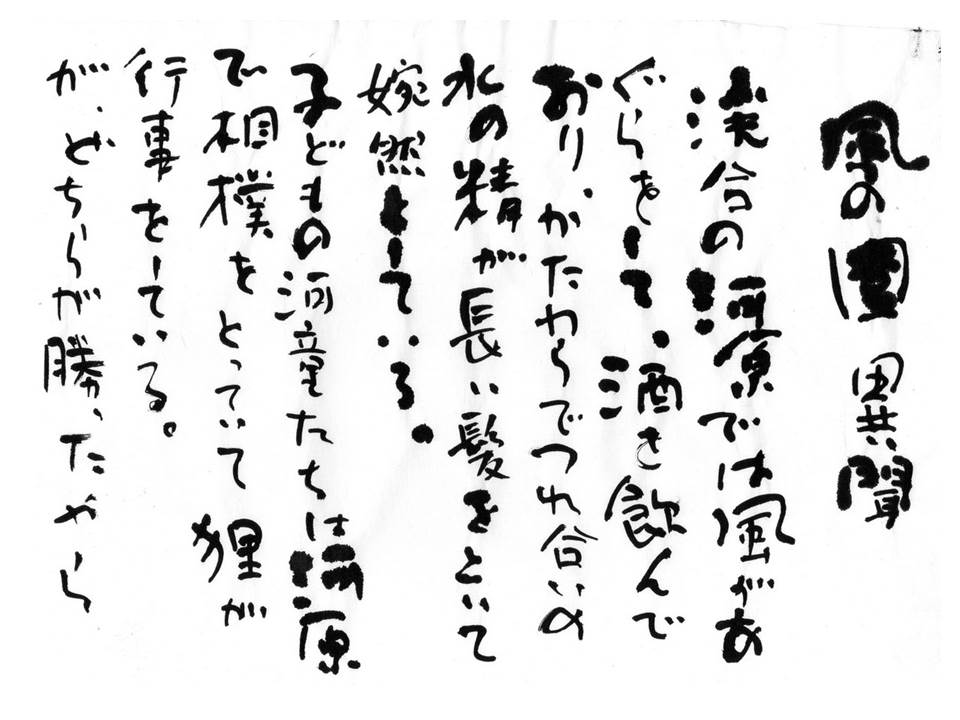 風の國 異聞
渓合の河原では風があ
ぐらをして、酒を飲んで
おり、かたわらでつれ合いの
水の精が長い髪をといて
婉然としている。
子どもの河童たちは河原
で相撲をとっていて 狸が
行事をしている。
が、どちらが勝ったやら